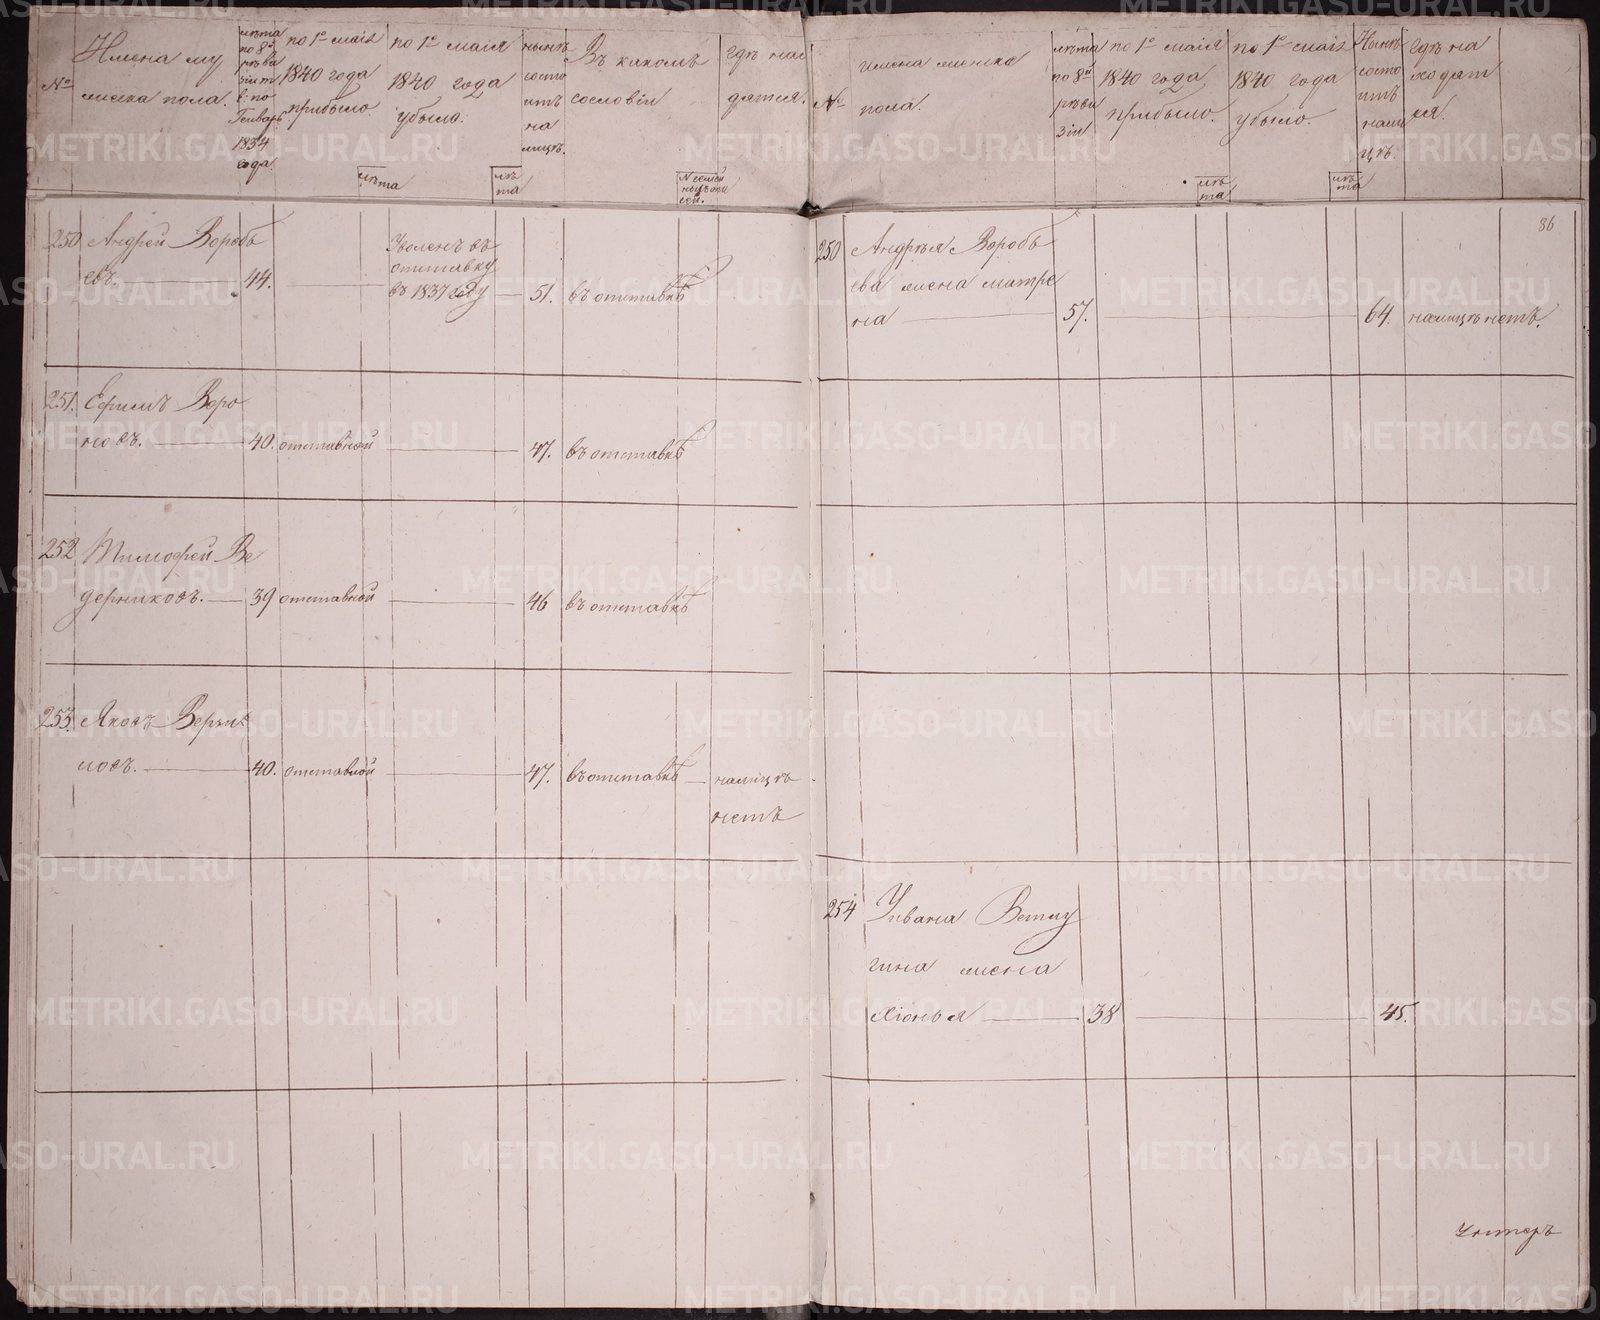 №
Имена му
жеска пола.
лѣта
по 8й
рѣви
зіи
по
Генварь
1834
года.
по 1е маія
1840 года
прибыло.
лѣта
по 1е маія
1840 года
убыло.
лѣ
та
нынѣ
состо
итъ
на
лицѣ.
Въ какомъ
сословіи
№ семей
ныхъ спи
сей.
гдѣ нахо
дятся.
250
Андрей Воробь
евъ.
44.
Уволенъ въ
отставку
въ 1837 году
51.
въ отставкѣ
251.
Ефимъ Воро
новъ.
40.
отставной
47.
въ отставкѣ
252
Тимофей Ве
дерниковъ.
39
отставной
46
въ отставкѣ
253.
Яковъ
40.
отставной
47.
въ отставкѣ
налицѣ
нетъ
№
имена женска
пола.
лѣта
по 8й
рѣви
зіи
по 1е маія
1840 года
прибыло.
лѣ
та
по 1е маія
1840 года
убыло.
лѣ
та
Нынѣ
состо
итъ
нали
цѣ.
гдѣ на
ходят
ся.
86
250
Андрѣя Воробь
ева жена матре
на
57.
64.
налицѣ нетъ.
254
Ивана Ветлу
гина жена
Хіонья
38
45.
Унтеръ
METRIKI.GASO-URAL.RU